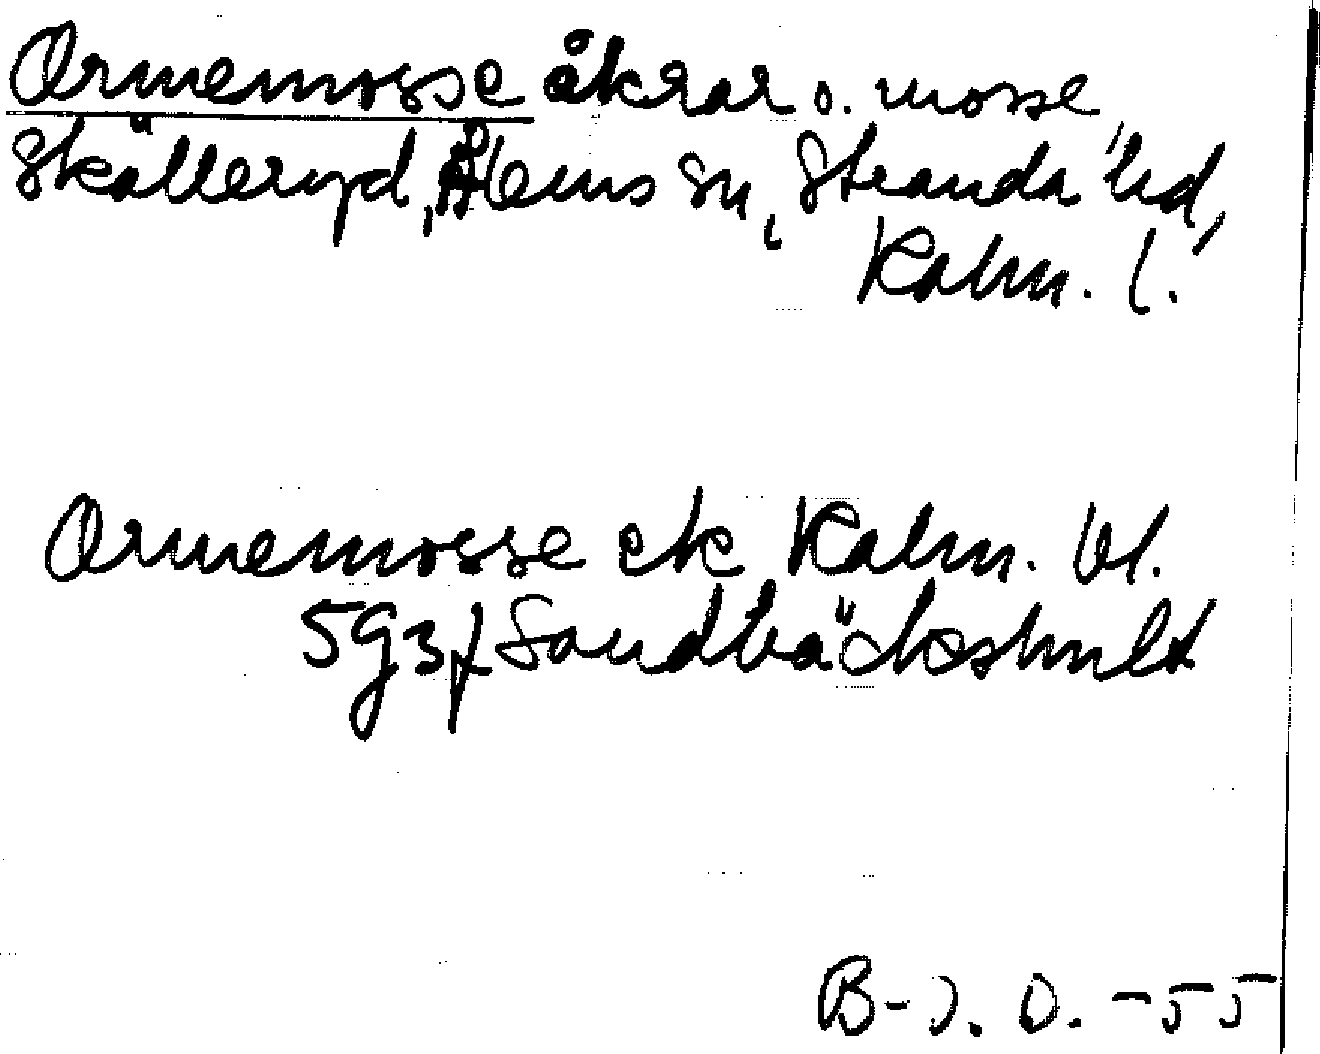 Ormemosse åkrar o. mosse,
Skälleryd, Ålems sn, Stranda hd,
Kalm. l.
Ormemosse ek Kalm. bl.
5g3f Sandbäckshult
B-J. O. -55